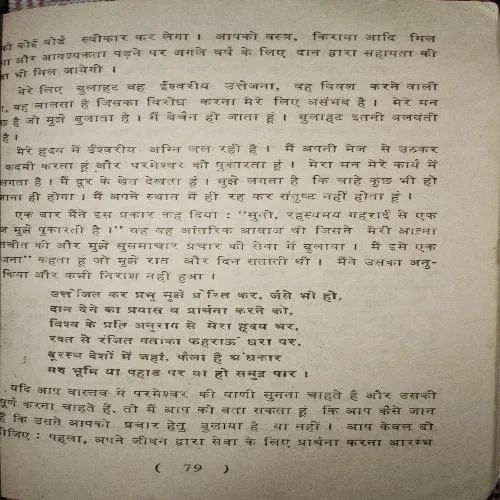 को कोई बोर्ड स्वीकार कर लेगा । आपको वस्त्र, किराया आदि मिल
गा और आवश्यकता पड़ने पर अगले वर्ष के लिए दान द्वारा सहायता की
भी मिल जायेगी ।
मेरे लिए बुलाहट वह ईश्वरीय उत्तेजना, वह विवश करने वाली
वह लालसा है जिसका विरोध करना मेरे लिए असंभव है । मेरे मन
छ है जो मुझे बुलाता है । मैं बेचैन हो जाता हूं । बुलाहट इतनी बलवंती
है ।
मेरे हृदय में ईश्वरीय अग्नि जल रही है । मैं अपनी मेज से उठकर
कदमी करता हूं और परमेश्वर को पुकारता हूं । मेरा मन मेरे कार्य में
लगता है । मैं दूर के खेत देखता हूं । मुझे लगता है कि चाहे कुछ भी हो
जाना ही होगा । मैं अपने स्थान में ही रह कर संतुष्ट नहीं होता हूं ।
एक बार मैंने इस प्रकार कह दिया : "सुनो, रहस्यमय गहराई से एक
मुझे पुकारती है ।" यह वह आंतरिक आवाज थी जिसने मेरी आत्मा
चीत की और मुझे सुसमाचार प्रचार की सेवा में बुलाया । मैं इसे एक
जना" कहता हूं जो मुझे रात और दिन सताती थी । मैंने उसका अनु-
किया और कभी निराश नहीं हुआ ।
उत्तेजित कर प्रभु मुझे प्रेरित कर, जैसे भी हो,
दान देने का प्रयास व प्रार्थना करने को,
विश्व के प्रति अनुराग से मेरा हृदय भर,
रक्त से रंजित पताका फहराऊं धरा पर,
दूरस्थ देशों में जहां, फैला है अंधकार
मरु भूमि या पहाड़ पर या हो समुद्र पार ।
यदि आप वास्तव में परमेश्वर की वाणी सुनना चाहते हैं और उसकी
पूर्ण करना चाहते हैं, तो मैं आप को बता सकता हूं कि आप कैसे जान
हैं कि उसने आपको प्रचार हेतु बुलाया है या नहीं । आप केवल दो
ीजिए : पहला, अपने जीवन द्वारा सेवा के लिए प्रार्थना करना आरम्भ
( 79 )